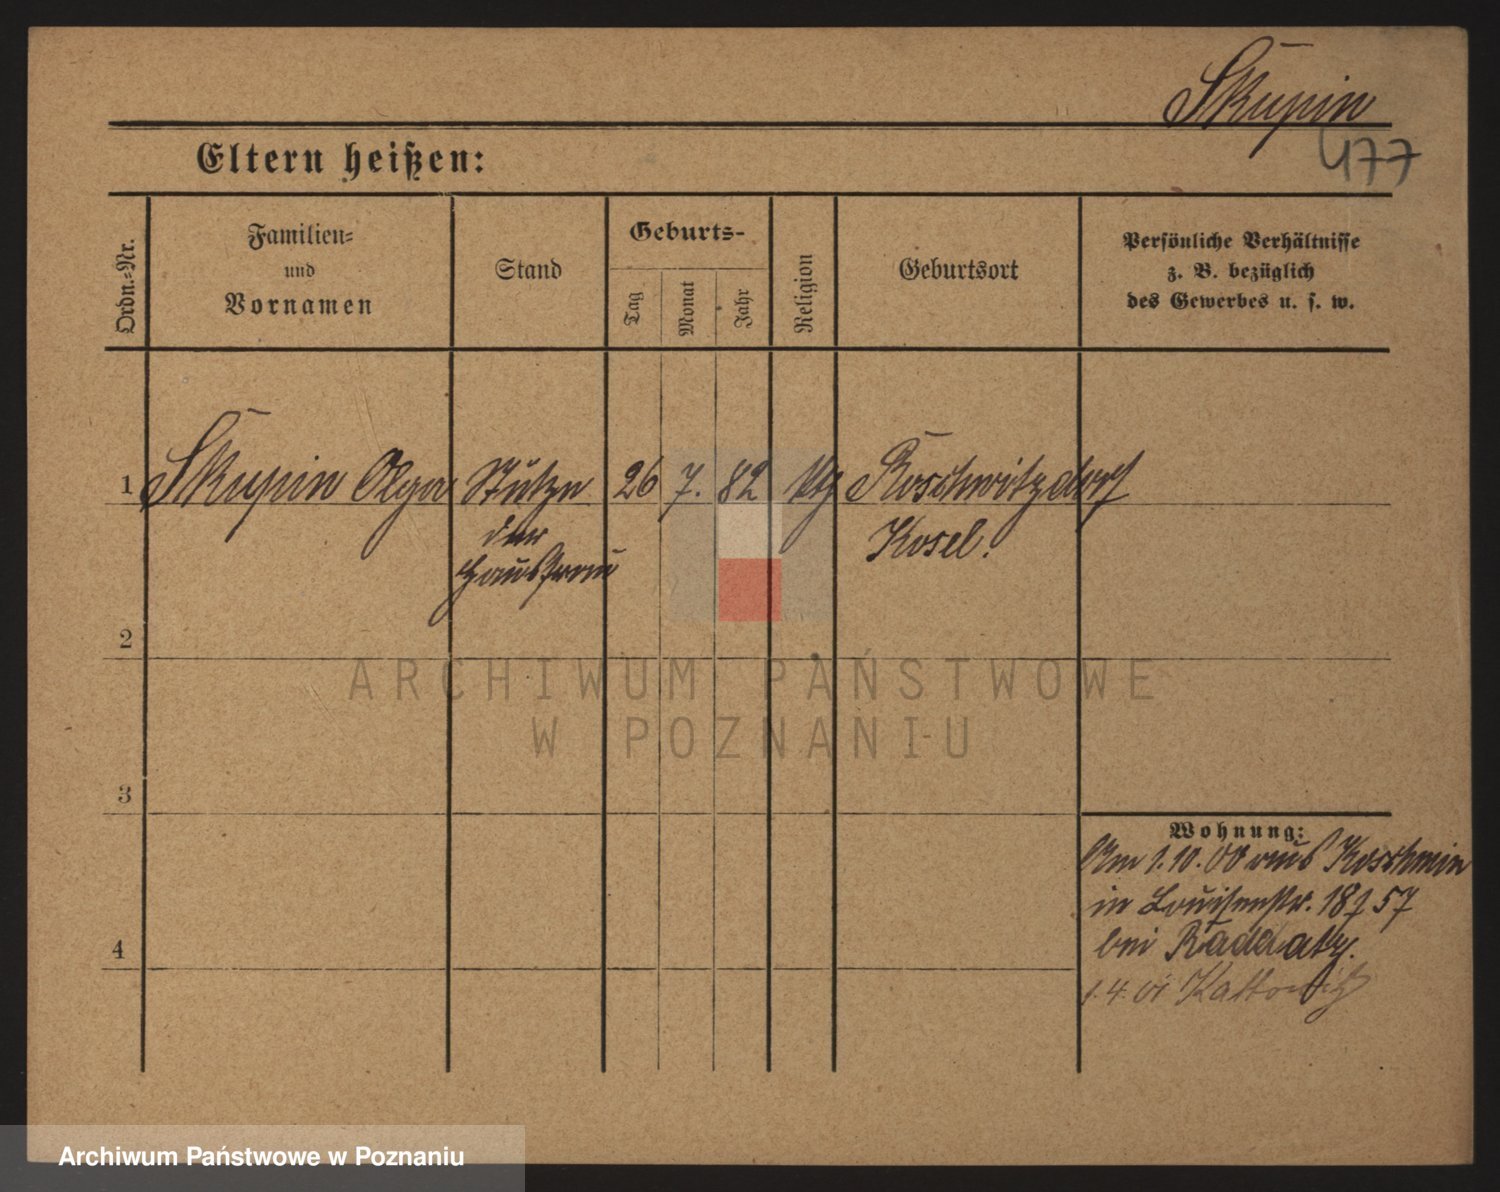 Skupin
477
Eltern heißen:
Ordn.-Nr.
Familien-
und
Vornamen
Stand
Geburts-
Tag
Monat
Jahr
Religion
Geburtsort
Persönliche Verhältnisse
z. B. bezüglich
des Gewerbes u. s. w.
1 Skupin Olga Stütze 26 7. 82 Roschwitzdorf
der
Hausfrau
Kosel.
2
3
4
Wohnung:
Am 1.10.00 aus Koschmin
in Louisenstr. 18 57
bei Raddatz.
1.4.01 Kattowitz
ARCHIWUM PAŃSTWOWE
W POZNANIU
Archiwum Państwowe w Poznaniu